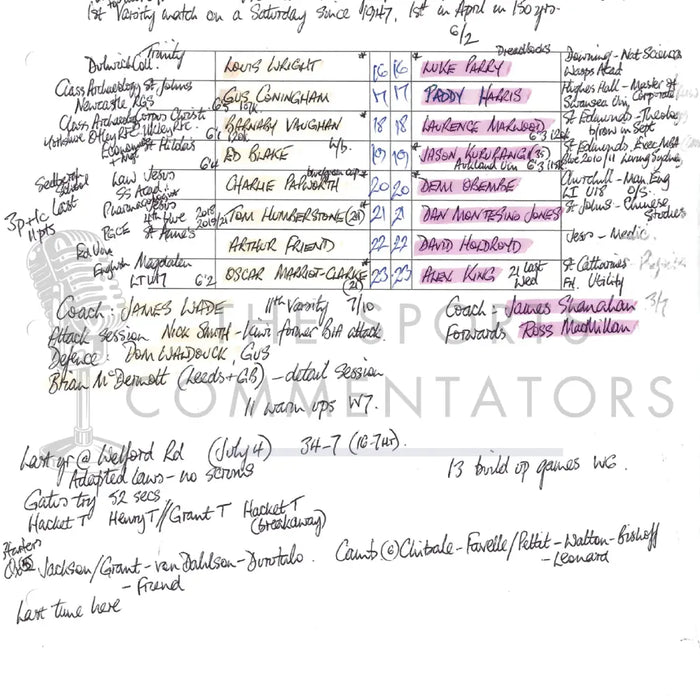 1st Varsity match on a Saturday since 1947. 1st in April in 150 yrs.
6/2
Dulwich Coll. Trinity LOUIS WRIGHT * 16 16 * LUKE PARRY Dreadlocks Downing - Nat Sciences
Wasps Acad
Class Archaeology St Johns GUS CONINGHAM 17 17 PADDY HARRIS Hughes Hall - Master of
Newcastle RGS 6'5 Swansea Uni, Corporate
Class Archaeology Corpus Christi BARNABY VAUGHAN * 18 18 LAURENCE MARWOOD 6'3 St Edmunds - Theology
Yorkshire Otley RFC 6'1 b/row in Sept
Economics St Hildas 6'4 ED BLAKE 19 19 * JASON KURURANGI (35) St Edmunds - Exec MBA
Auckland Uni 6'3 Blue 2010/11 Living Sydney
Sedbergh School Law Jesus CHARLIE PAPWORTH * 20 20 * DEMI OBEMBE Churchill - Man Eng
SS Acad LI U18 O/S.
3p+1c Last Pharmacology Jesus
11pts 4th blue 2018 2019/21 TOM HUMBERSTONE (24) * 21 21 DAN MONTESINO JONES St Johns - Chinese
PGCE St Anne's Studies
ARTHUR FRIEND 22 22 DAVID HOLDROYD Jesus - Medic.
English Magdalen OSCAR MARRIOT-CLARKE * 23 23 ALEX KING 21 Last St Catharines
LTU17 6'2 (21) Wed FH. Utility
Coach: JAMES WADE 11th Varsity 7/10 Coach: James Shanahan 3/7
Attack session NICK SMITH - Kiwi former BIA attack. Forwards Ross MacMillan
Defence: DOM WALDOUCK, GUS
Brian McDermott (Leeds + GB) - detail session
THE SPORTS
COMMENTATORS
11 warm ups W7.
Last yr @ Welford Rd (July 4) 34-7 (16-7 HT). 13 build up games W6.
Adapted laws - no scrums
Gates try 52 secs
Hacket T Henry T // Grant T Hacket T
(breakaway)
Starters
Ox - Jackson/Grant - van Dahlson - Durutalo. Camb 6 Chibale - Favelle/Pettit - Walton - Bishoff
- Friend - Leonard
Last time here